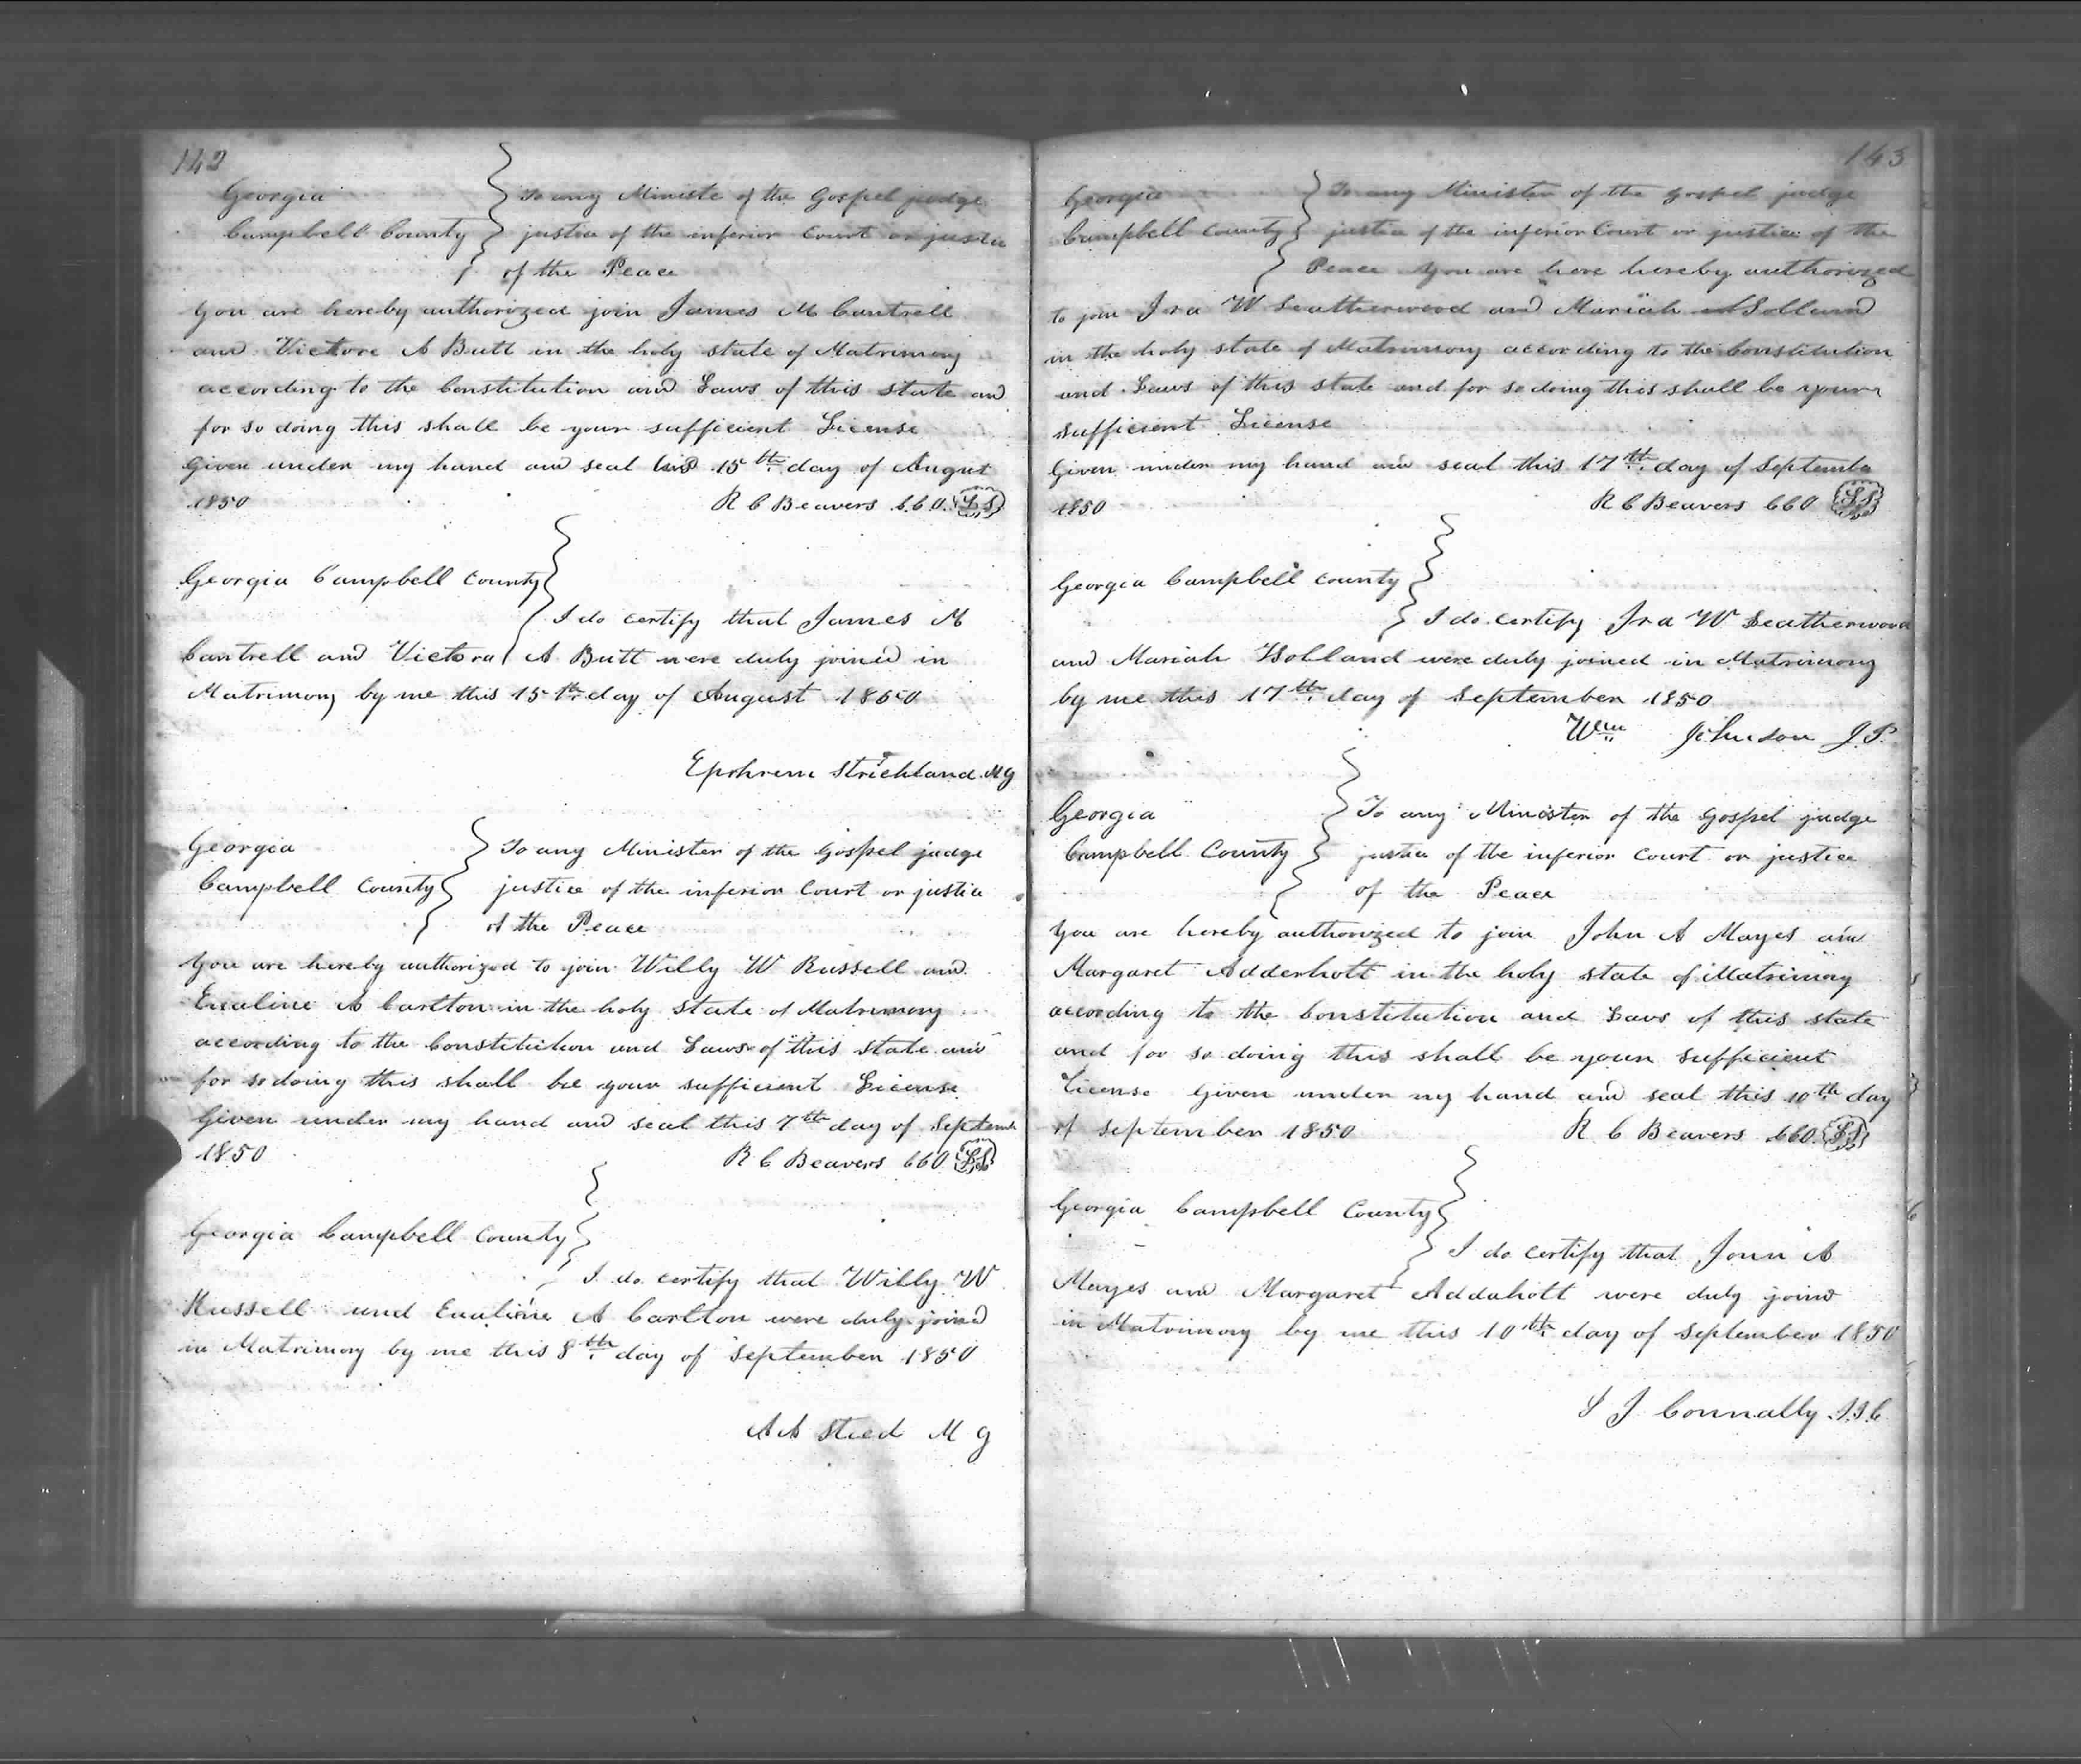 142
Georgia } To any Ministe of the Gospel judge
Campbell County } justice of the inferior Court or justice
of the Peace
You are hereby authorized join James M Cantrell
and Victore A Butt in the holy state of Matrimony
according to the Constitution and Laws of this state and
for so doing this shall be your sufficient License
Given under my hand and seal this 15th day of August
1850 R C Beavers CCO LS
Georgia Campbell County }
I do certify that James M
Cantrell and Victora A Butt were duly joined in
Matrimony by me this 15th day of August 1850
Ephrem Strickland MG
Georgia } To any Minister of the Gospel judge
Campbell County } justice of the inferior Court or justice
of the Peace
You are hereby authorized to join Willy W Russell and
Eualine A Carlton in the holy state of Matrimony
according to the Constitution and Laws of this state and
for so doing this shall be your sufficient License
Given under my hand and seal this 7th day of Septemb
1850 R C Beavers CCO LS
Georgia Campbell County }
I do certify that Willy W
Russell and Eualine A Carlton were duly joined
in Matrimony by me this 8th day of September 1850
A A Steed M G
143
Georgia } To any Minister of the Gospel judge
Campbell County } justice of the inferior Court or justice of the
Peace You are here hereby authorized
to join Ira W Leatherwood and Mariah Holland
in the holy state of Matrimony according to the Constitution
and Laws of this state and for so doing this shall be your
sufficient License
Given under my hand and seal this 17th day of Septembe
1850 R C Beavers CCO LS
Georgia Campbell County }
I do certify Ira W Leatherwood
and Mariah Holland were duly joined in Matrimony
by me this 17th day of September 1850
Wm Johnson J.P.
Georgia } To any Minister of the Gospel judge
Campbell County } justice of the inferior Court or justice
of the Peace
You are hereby authorized to join John A Mayes and
Margaret Adderholt in the holy state of Matrimony
according to the Constitution and Laws of this state
and for so doing this shall be your sufficient
License Given under my hand and seal this 10th day
of September 1850 R C Beavers CCO LS
Georgia Campbell County }
I do certify that John A
Mayes and Margaret Addaholt were duly joind
in Matrimony by me this 10th day of September 1850
J Connally J.I.C.